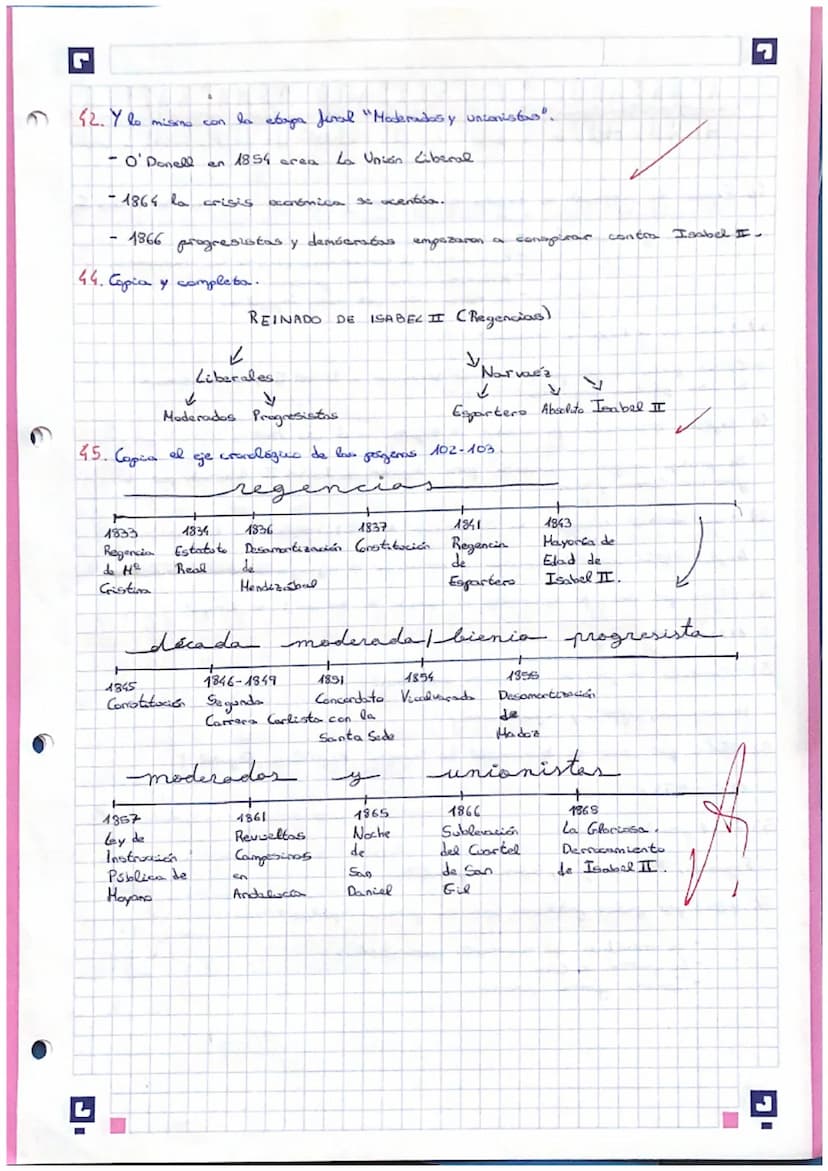 42. Y lo mismo con la etapa final "Moderados y unionistas".
- O'Donell en 1854 crea La Unión Liberal
- 1864 la crisis económica se acentúa.
- 1866 progresistas y demócratas empezaron a conspirar contra Isabel II.
44. Copia y completa.
REINADO DE ISABEL II (Regencias)
Liberales Narvaéz
Moderados Progresistas Espartero Absoluto Isabel II
45. Copia el eje cronológico de las páginas 102-103
regencias
1833 1834 1836 1837 1841 1843
Regencia Estatuto Desamortización Constitución Regencia Mayoría de
de Mª Real de de Edad de
Cristina Mendizábal Espartero Isabel II.
década moderada/bienio progresista
1845 1846-1849 1851 1854 1855
Constitución Segunda Concordato Vicalvarada Desamortización
Carrera Carlista con la de
Santa Sede Madoz
moderados y unionistas
1857 1861 1865 1866 1868
Ley de Revueltas Noche Sublevación La Gloriosa.
Instrucción Campesinas de del Cuartel Derrocamiento
Pública de en San de San de Isabel II.
Moyano Andalucía Daniel Gil